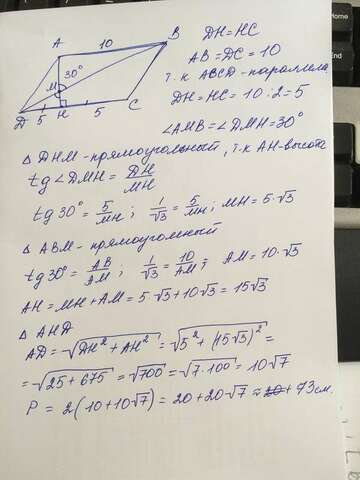 A 10 B
DH=HC
AB=DC=10
M 30°
т.к ABCD-параллела
D 5 H 5 C
DH=HC=10:2=5
∠AMB=∠DMH=30°
△ DHM-прямоугольный, т.к AH-высота
tg∠DMH=DH/MH
tg30°=5/MH; 1/√3=5/MH; MH=5·√3
△ ABM-прямоугольный
tg30°=AB/AM; 1/√3=10/AM; AM=10·√3
AH=MH+AM=5·√3+10√3=15√3
△ AHD
AD=√DH²+AH²=√5²+(15√3)²=
=√25+675=√700=√7·100=10√7
P=2(10+10√7)=20+20√7≈ 73см.